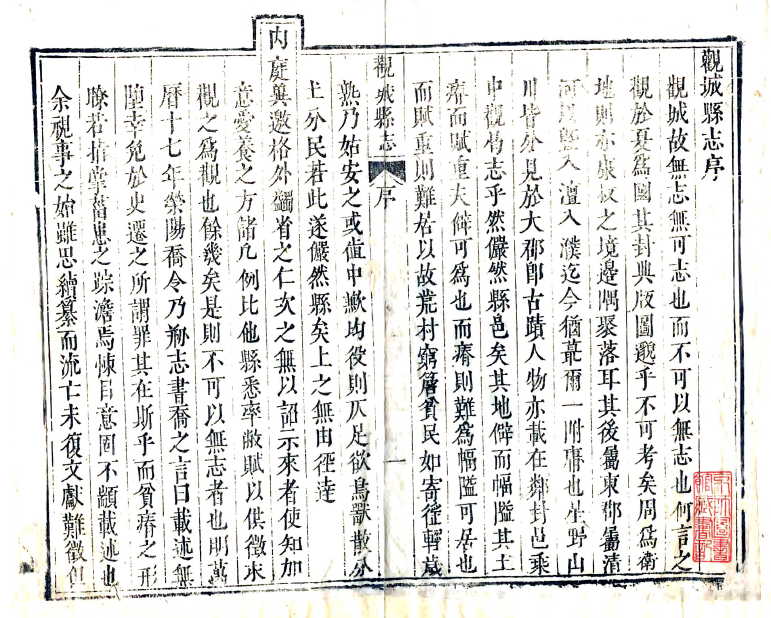 觀城縣志序
觀城故無志無可志也而不可以無志也何言之
觀於夏爲國其封典版圖邈乎不可考矣周爲衛
地則亦康叔之境邊隅聚落耳其後屬東郡屬清
河段曁入澶入濮迄今猶蕞爾一附庸也星野山
川皆分見於大郡卽古蹟人物亦載在鄰封邑乘
中觀何志乎然儼然縣邑矣其地僻而幅隘其土
瘠而賦重夫僻可爲也而瘠則難爲幅隘可居也
而賦重則難居以故荒村窮簷貧民如寄徑輕歲
觀城縣志 序 一
熟乃始安之或値中歉均役則仄足欲鳥獸散分
土分民若此遂儼然縣矣上之無由徑達
內庭冀邀格外蠲省之仁次之無以詔示來者使知加
意愛養之方儲凡例比他縣悉率敝賦以供徵求
觀之爲觀也餘幾矣是則不可以無志者也明萬
曆十七年滎陽喬令乃剏志書喬之言曰載述無
陋幸免於史遷之所謂罪其在斯乎而貧瘠之形
瞭若指掌奮思之踪澹焉悚目意固不顓載述也
余視事之始雖思續纂而流亡未復文獻難徵但